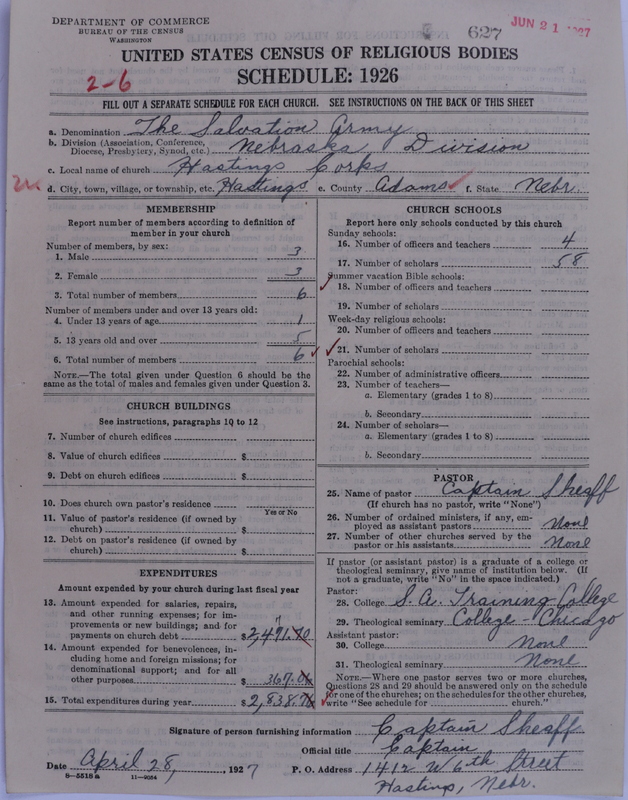 DEPARTMENT OF COMMERCE
BUREAU OF THE CENSUS
WASHINGTON
627
JUN 21 1927
UNITED STATES CENSUS OF RELIGIOUS BODIES
SCHEDULE: 1926
2-6
FILL OUT A SEPARATE SCHEDULE FOR EACH CHURCH. SEE INSTRUCTIONS ON THE BACK OF THIS SHEET
a. Denomination The Salvation Army
b. Division (Association, Conference, Diocese, Presbytery, Synod, etc.) Nebraska Division
c. Local name of church Hastings Corks
d. City, town, village, or township, etc. Hastings e. County Adams f. State Nebr.
MEMBERSHIP
Report number of members according to definition of
member in your church
Number of members, by sex:
1. Male 3
2. Female 3
3. Total number of members 6
Number of members under and over 13 years old:
4. Under 13 years of age 1
5. 13 years old and over 5
6. Total number of members 6
NOTE.—The total given under Question 6 should be
same as the total of males and females given under Question 3.
CHURCH BUILDINGS
See instructions, paragraphs 10 to 12
7. Number of church edifices
8. Value of church edifices $
9. Debt on church edifices $
10. Does church own pastor's residence
Yes or No
11. Value of pastor's residence (if owned by
church) $
12. Debt on pastor's residence (if owned by
church) $
EXPENDITURES
Amount expended by your church during last fiscal year
13. Amount expended for salaries, repairs,
and other running expenses; for im-
provements or new buildings; and for
payments on church debt $2,471.70
14. Amount expended for benevolences, in-
cluding home and foreign missions; for
denominational support; and for all
other purposes $ 367.06
15. Total expenditures during year $2,838.76
CHURCH SCHOOLS
Report here only schools conducted by this church
Sunday schools:
16. Number of officers and teachers 4
17. Number of scholars 58
Summer vacation Bible schools:
18. Number of officers and teachers
19. Number of scholars
Week-day religious schools:
20. Number of officers and teachers
21. Number of scholars
Parochial schools:
22. Number of administrative officers
23. Number of teachers—
a. Elementary (grades 1 to 8)
b. Secondary
24. Number of scholars—
a. Elementary (grades 1 to 8)
b. Secondary
PASTOR
25. Name of pastor Captain Sheaff
(If church has no pastor, write "None")
26. Number of ordained ministers, if any, em-
ployed as assistant pastors None
27. Number of other churches served by the
pastor or his assistants None
If pastor (or assistant pastor) is a graduate of a college or
theological seminary, give name of institution below. (If
not a graduate, write "No" in the space indicated.)
Pastor:
28. College S.A. Training College
29. Theological seminary College - Chicago
Assistant pastor:
30. College None
31. Theological seminary None
NOTE.—Where one pastor serves two or more churches,
Questions 28 and 29 should be answered only on the schedule
for one of the churches; on the schedules for the other churches,
write "See schedule for church."
Signature of person furnishing information Captain Sheaff
Official title Captain
Date April 28, 1927 P. O. Address 1412 W 6th Street
8-5515 a 11-9054
Hastings, Nebr.